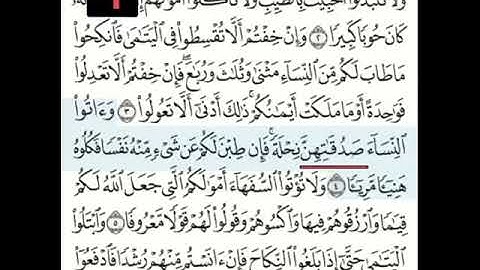 وَلَا تَتَبَدَّلُوا۟ ٱلْخَبِيثَ بِٱلطَّيِّبِ وَلَا تَأْكُلُوٓا۟ أَمْوَٰلَهُمْ
كَانَ حُوبًا كَبِيرًا ٢ وَإِنْ خِفْتُمْ أَلَّا تُقْسِطُوا۟ فِى ٱلْيَتَٰمَىٰ فَٱنكِحُوا۟
مَا طَابَ لَكُم مِّنَ ٱلنِّسَآءِ مَثْنَىٰ وَثُلَٰثَ وَرُبَٰعَ ۖ فَإِنْ خِفْتُمْ أَلَّا تَعْدِلُوا۟
فَوَٰحِدَةً أَوْ مَا مَلَكَتْ أَيْمَٰنُكُمْ ۚ ذَٰلِكَ أَدْنَىٰٓ أَلَّا تَعُولُوا۟ ٣ وَءَاتُوا۟
ٱلنِّسَآءَ صَدُقَٰتِهِنَّ نِحْلَةً ۚ فَإِن طِبْنَ لَكُمْ عَن شَىْءٍ مِّنْهُ نَفْسًا فَكُلُوهُ
هَنِيٓـًٔا مَّرِيٓـًٔا ٤ وَلَا تُؤْتُوا۟ ٱلسُّفَهَآءَ أَمْوَٰلَكُمُ ٱلَّتِى جَعَلَ ٱللَّهُ لَكُمْ
قِيَٰمًا وَٱرْزُقُوهُمْ فِيهَا وَٱكْسُوهُمْ وَقُولُوا۟ لَهُمْ قَوْلًا مَّعْرُوفًا ٥ وَٱبْتَلُوا۟
ٱلْيَتَٰمَىٰ حَتَّىٰٓ إِذَا بَلَغُوا۟ ٱلنِّكَاحَ فَإِنْ ءَانَسْتُم مِّنْهُمْ رُشْدًا فَٱدْفَعُوٓا۟